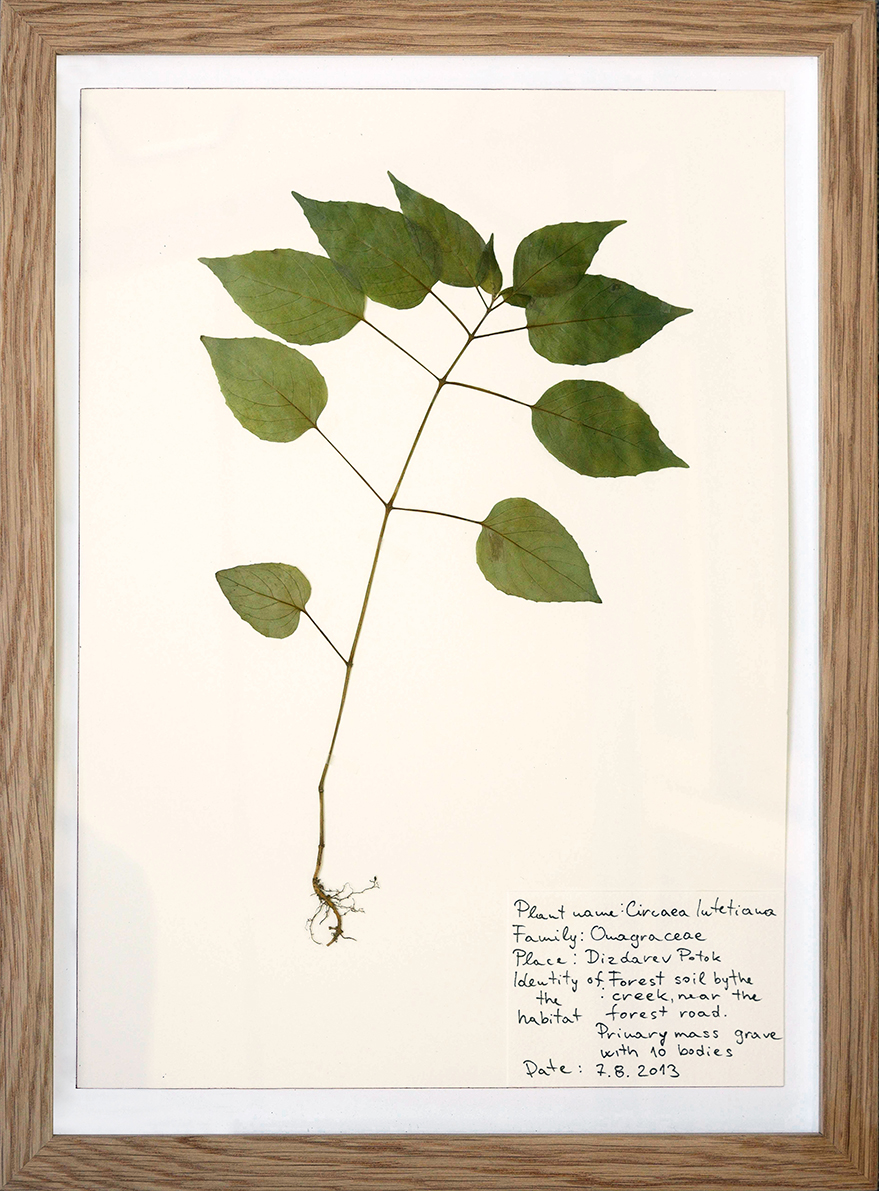 Plant name: Circaea lutetiana
Family: Onagraceae
Place: Dizdarev Potok
Identity of Forest soil by the
the : creek, near the
habitat forest road.
Primary mass grave
with 10 bodies
Date: 7.8.2013